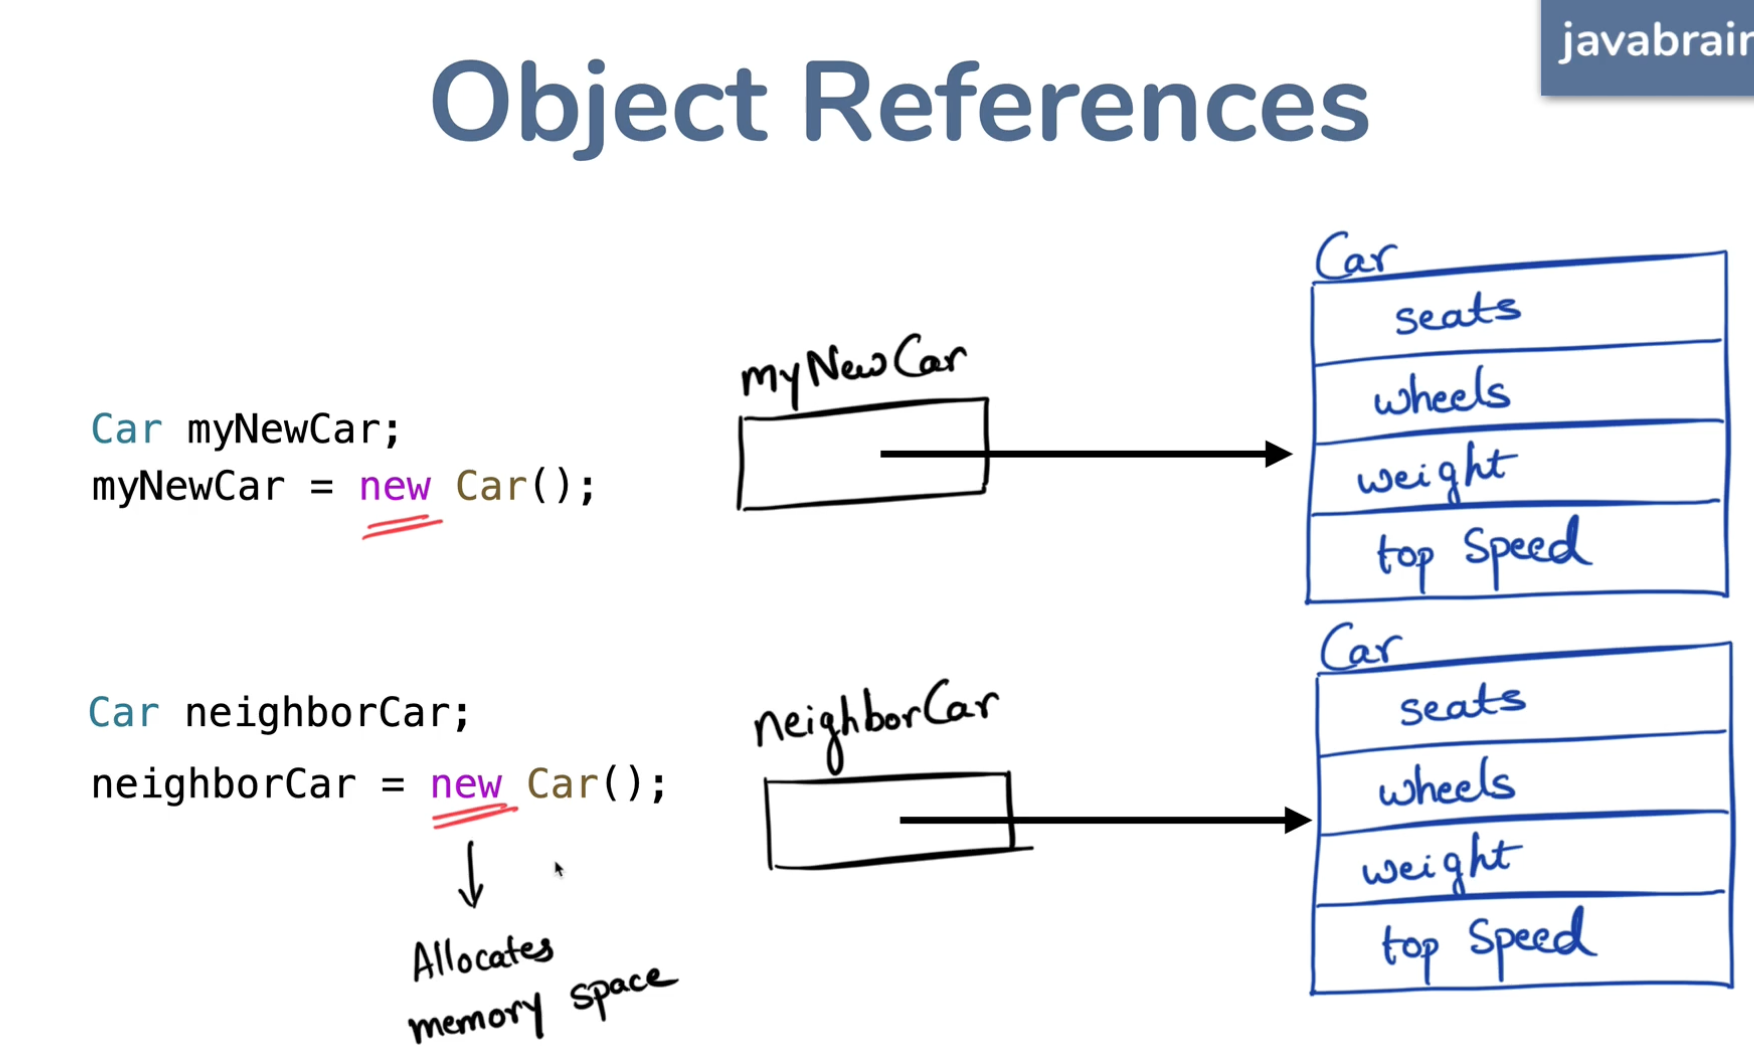 javabrain
Object References
Car myNewCar;
myNewCar = new Car();
myNewCar
Car
seats
wheels
weight
top Speed
Car neighborCar;
neighborCar = new Car();
Allocates
memory space
neighborCar
Car
seats
wheels
weight
top Speed